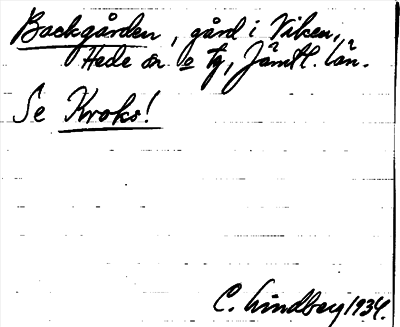 Backgården, gård i Viken,
Hede sn o tg, Jämtl. län.
Se Kroks!
C. Lindberg 1934.